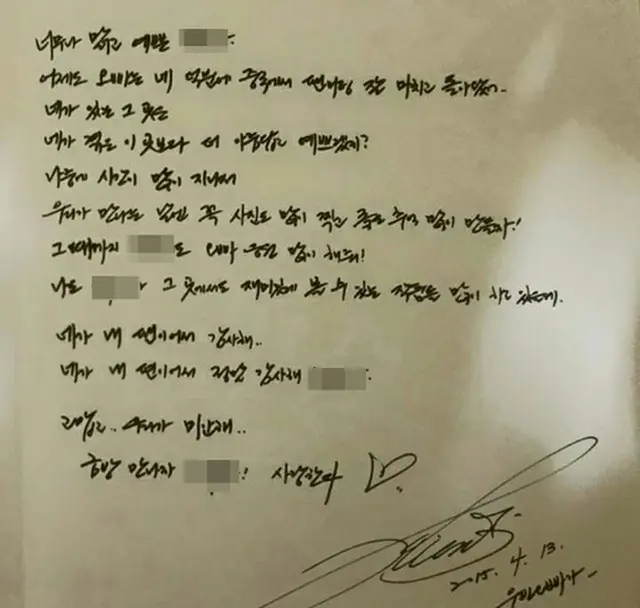 너무나 맑고 예쁜
어제도 오빠는 네 덕분에 중국에서 팬미팅 잘 마치고 돌아왔어..
네가 있는 그 곳은
네가 겪은 이 곳보다 더 아름답고 예쁘겠지?
나중에 시간이 많이 지나서
우리가 만나는 날엔 꼭 사진도 많이 찍고 좋은 추억 많이 만들자!
그때까지 도 오빠 응원 많이 해줘!
나도 그 곳에서도 재미있게 볼 수 있는 작품들 많이 하고 있을게.
네가 내 팬이어서 감사해..
네가 내 팬이어서 정말 감사해
그리고.. 오빠가 미안해..
금방 만나자 ! 사랑한다
2015. 4. 13.